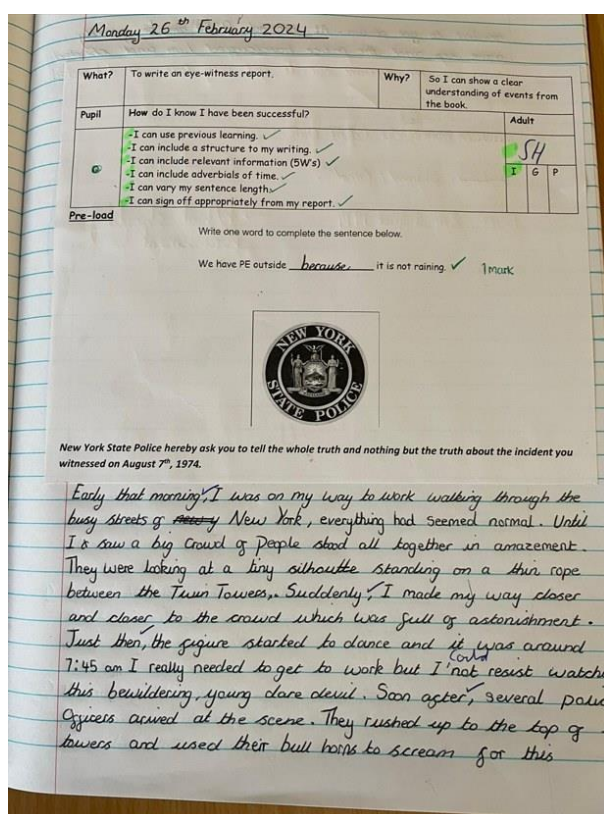 Monday 26th February 2024
What?
To write an eye-witness report.
Why?
So I can show a clear
understanding of events from
the book.
Pupil
How do I know I have been successful?
Adult
-I can use previous learning. ✓
-I can include a structure to my writing. ✓
-I can include relevant information (5W's) ✓
-I can include adverbials of time. ✓
-I can vary my sentence length ✓
-I can sign off appropriately from my report. ✓
SH
I G P
Pre-load
Write one word to complete the sentence below.
We have PE outside because it is not raining. ✓ 1 mark
NEW YORK
STATE POLICE
New York State Police hereby ask you to tell the whole truth and nothing but the truth about the incident you
witnessed on August 7th, 1974.
Early that morning, I was on my way to work walking through the
busy streets of New York, everything had seemed normal. Until
I saw a big crowd of people stood all together in amazement.
They were looking at a tiny silhoutte standing on a thin rope
between the Twin Towers,. Suddenly, I made my way closer
and closer to the crowd which was full of astonishment.
Just then, the figure started to dance and it was around
7:45 am I really needed to get to work but I could not resist watch
this bewildering, young dare devil. Soon after, several
officers arived at the scene. They rushed up to the top of
towers and used their bull horns to scream for this